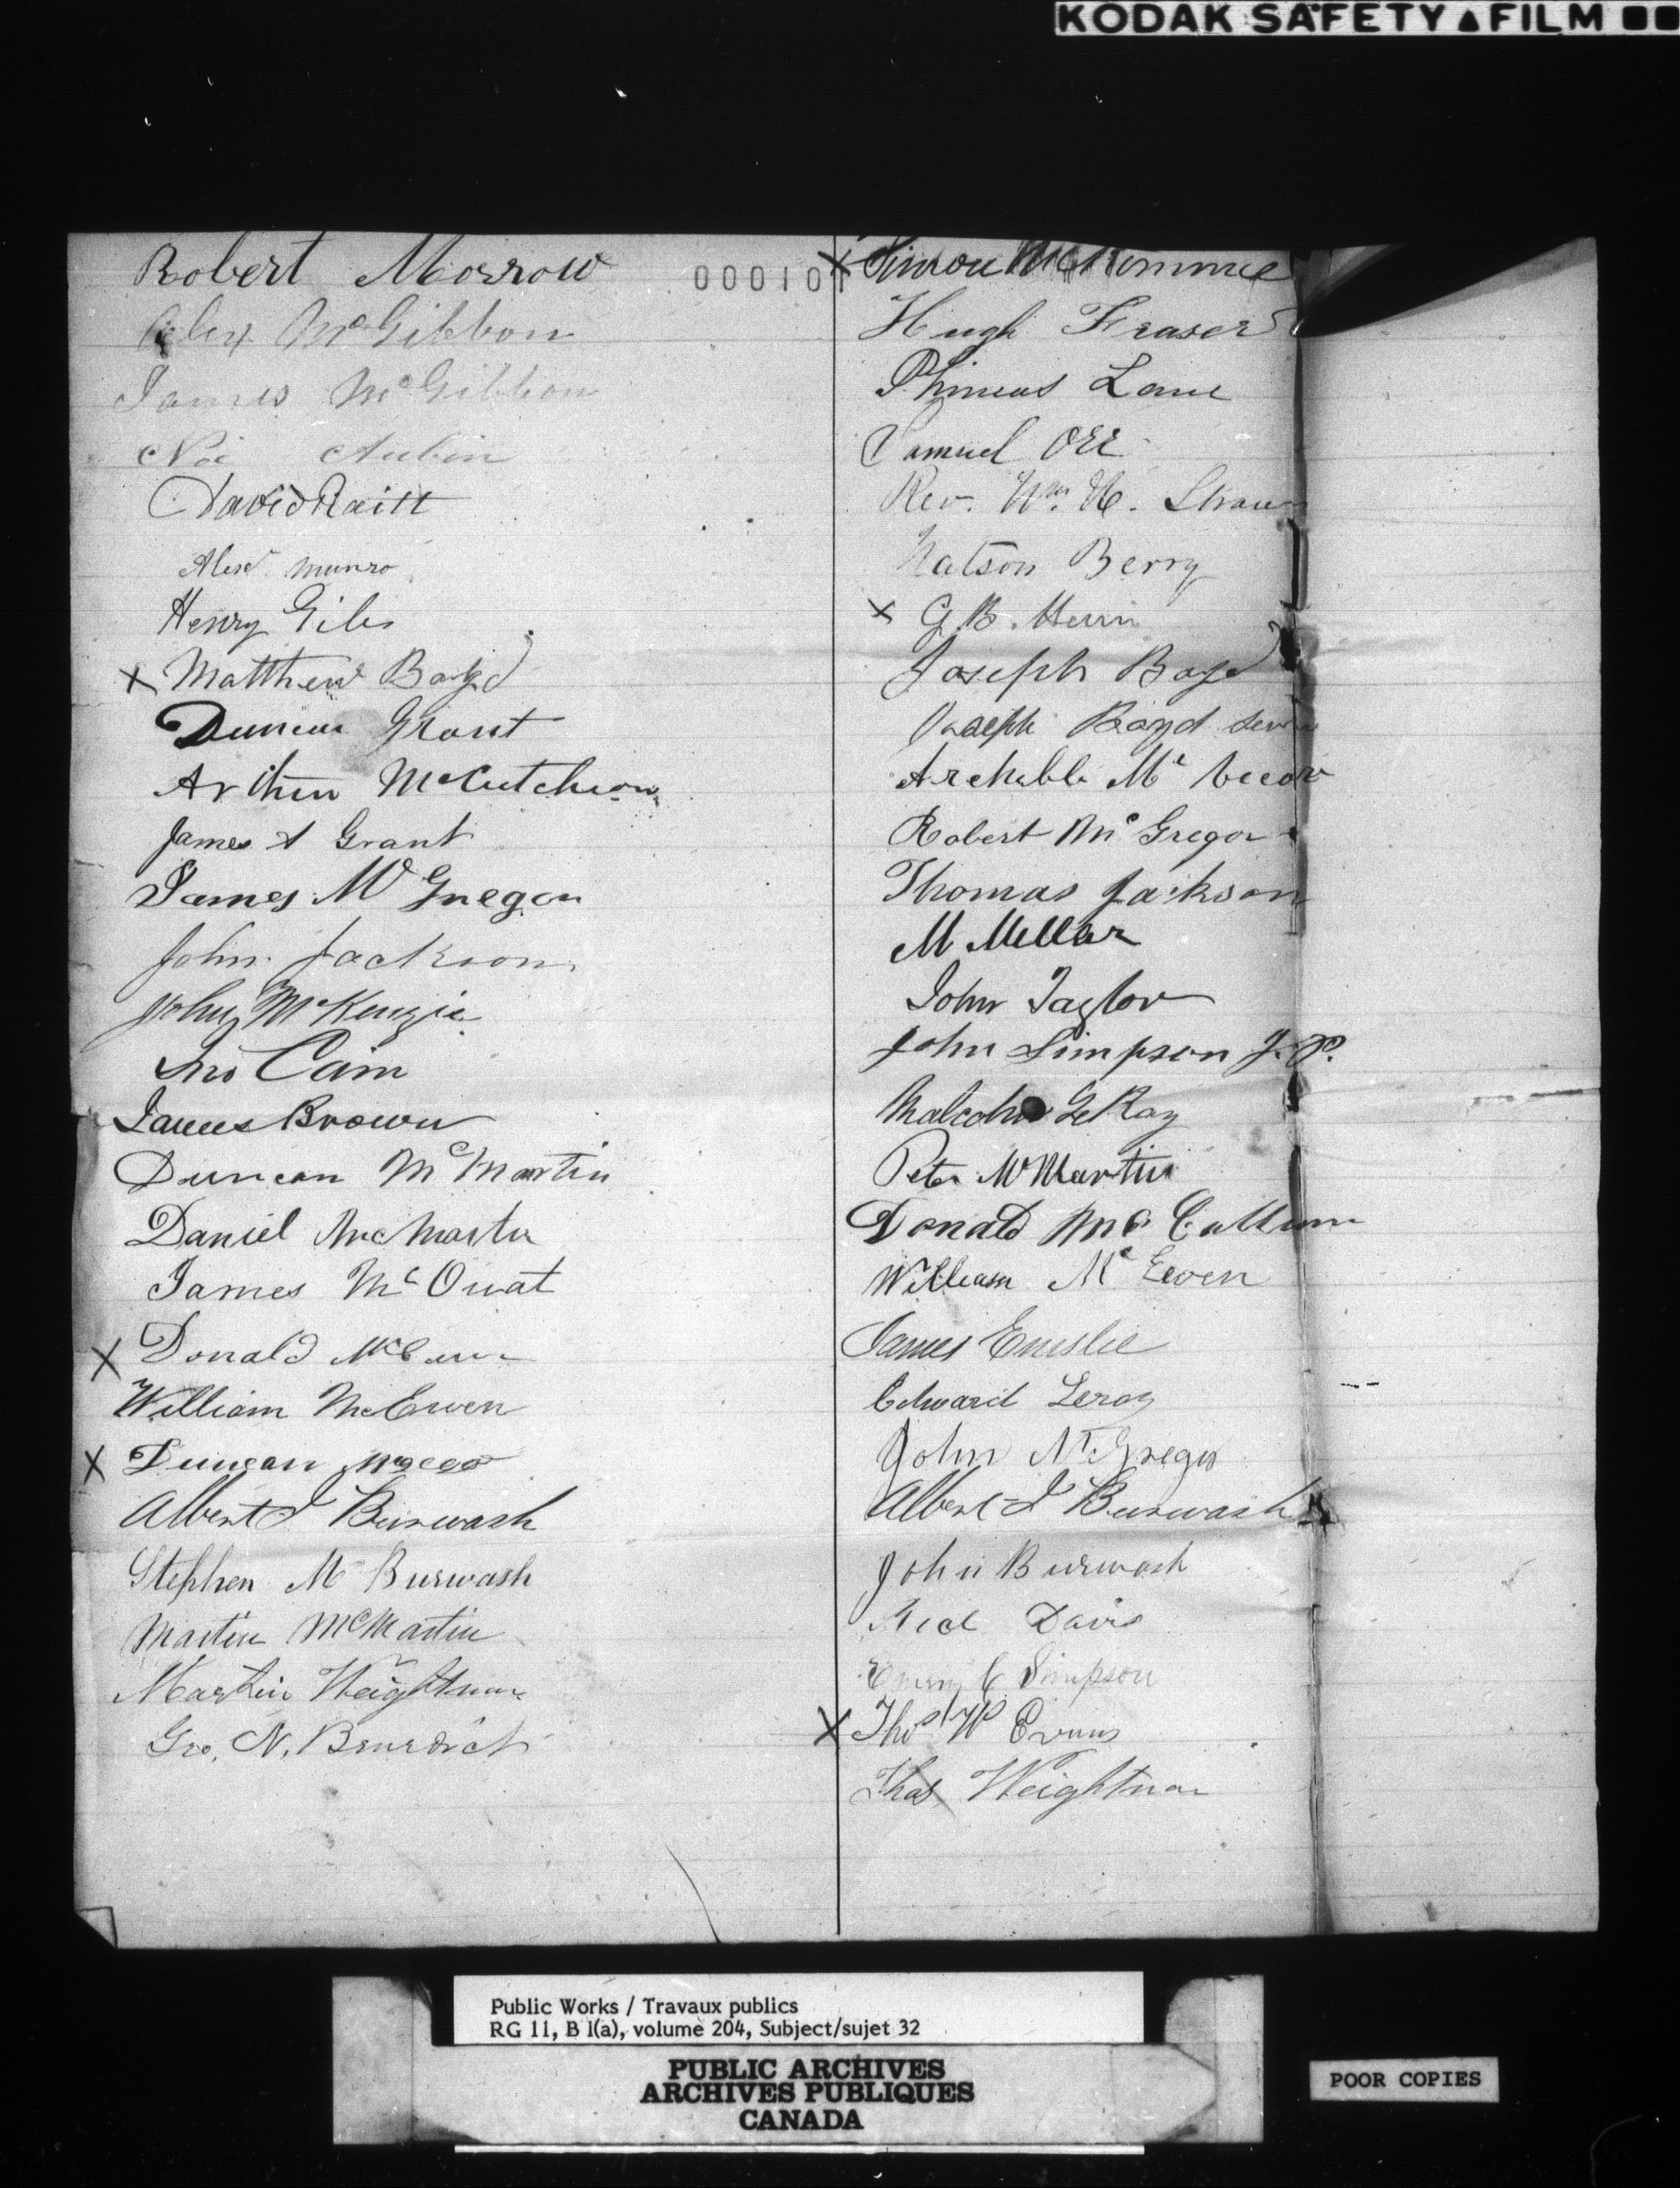 KODAK SAFETY ▲ FILM
000101
Robert Morrow
Alex McGibbon
James McGibbon
Noé Aubin
David Raitt
Alexr Munro
Henry Giles
X Matthew Boyd
Duncan Grant
Arthur McCutcheon
James A Grant
James McGregor
John Jackson
John McKenzie
Jno Cain
James Brown
Duncan McMartin
Daniel McMaster
James McOuat
X Donald
William McEwen
X Duncan
Albert J Burwash
Stephen M Burwash
Martin McMartin
Martin Weightman
Geo. N. Benedict
X Simon
Hugh Fraser
Phineas Lane
Samuel Orr
Rev. Wm. H.
Watson Berry
X G. B.
Joseph Boyd
Joseph Boyd
Archibld Mc
Robert McGregor
Thomas Jackson
M Millar
John Taylor
John Simpson J.P.
Malcolm LeRoy
Peter McMartin
Donald McCallum
William McEwen
James Emslie
Edward Leroy
John McGregor
Albert J Burwash
John Burwash
Davis
Simpson
X Thos W Evans
Thos Weightman
Public Works / Travaux publics
RG 11, B 1(a), volume 204, Subject/sujet 32
PUBLIC ARCHIVES
ARCHIVES PUBLIQUES
CANADA
POOR COPIES